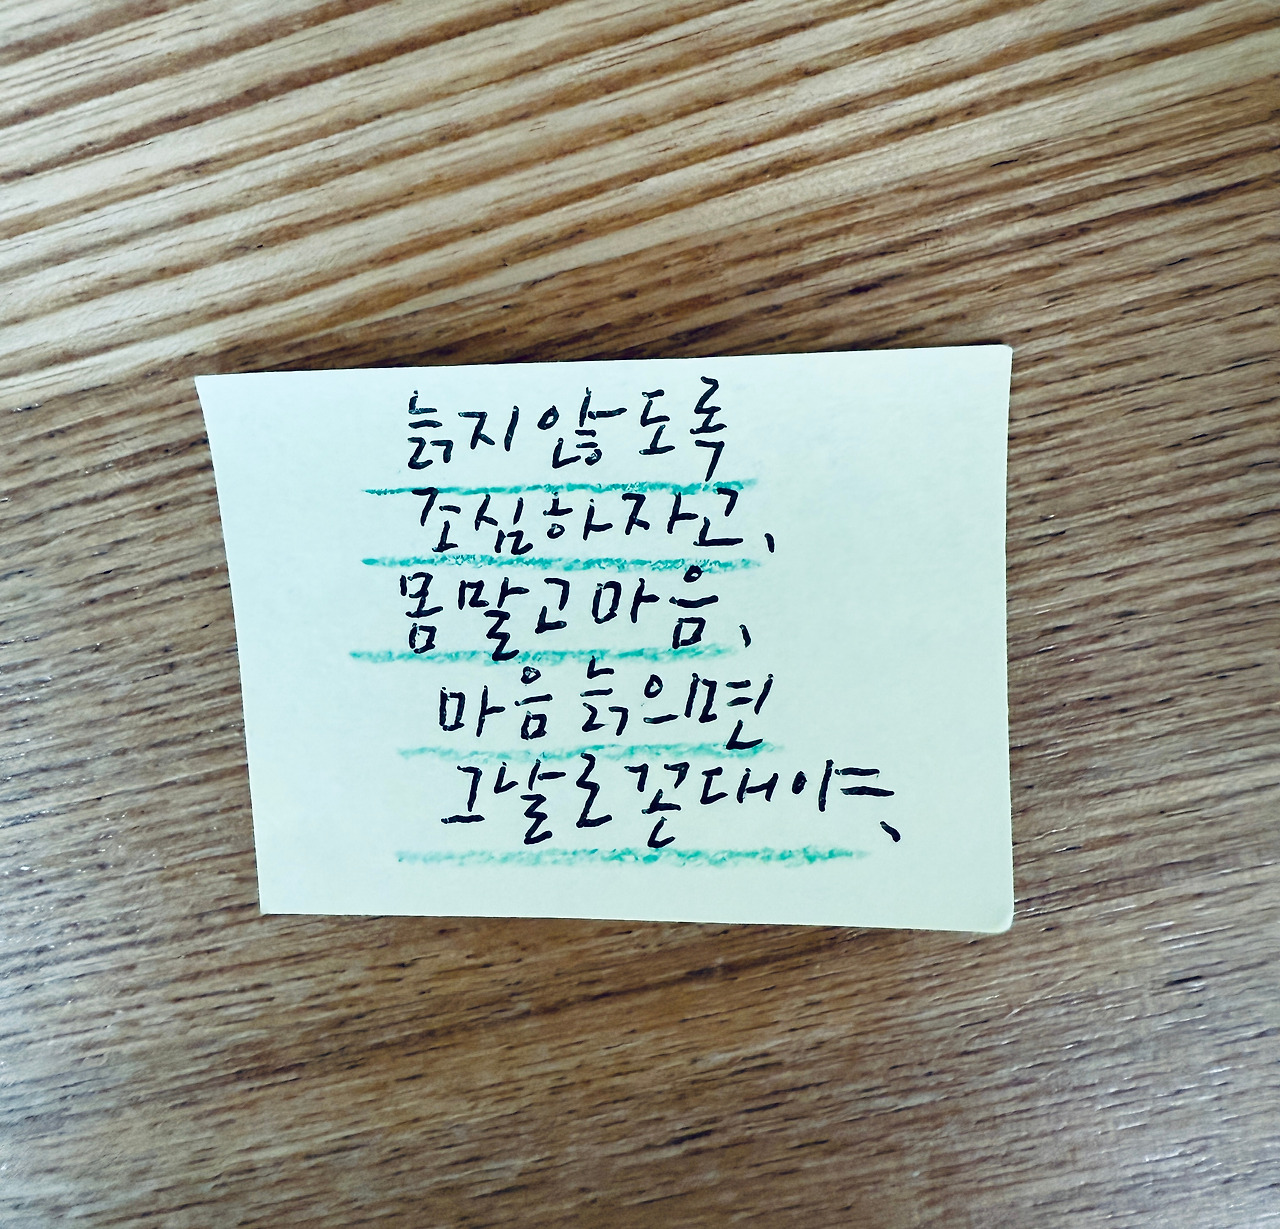 늙지 않도록
조심하자고,
몸 말고 마음,
마음 늙으면
그날로 꼰대야,